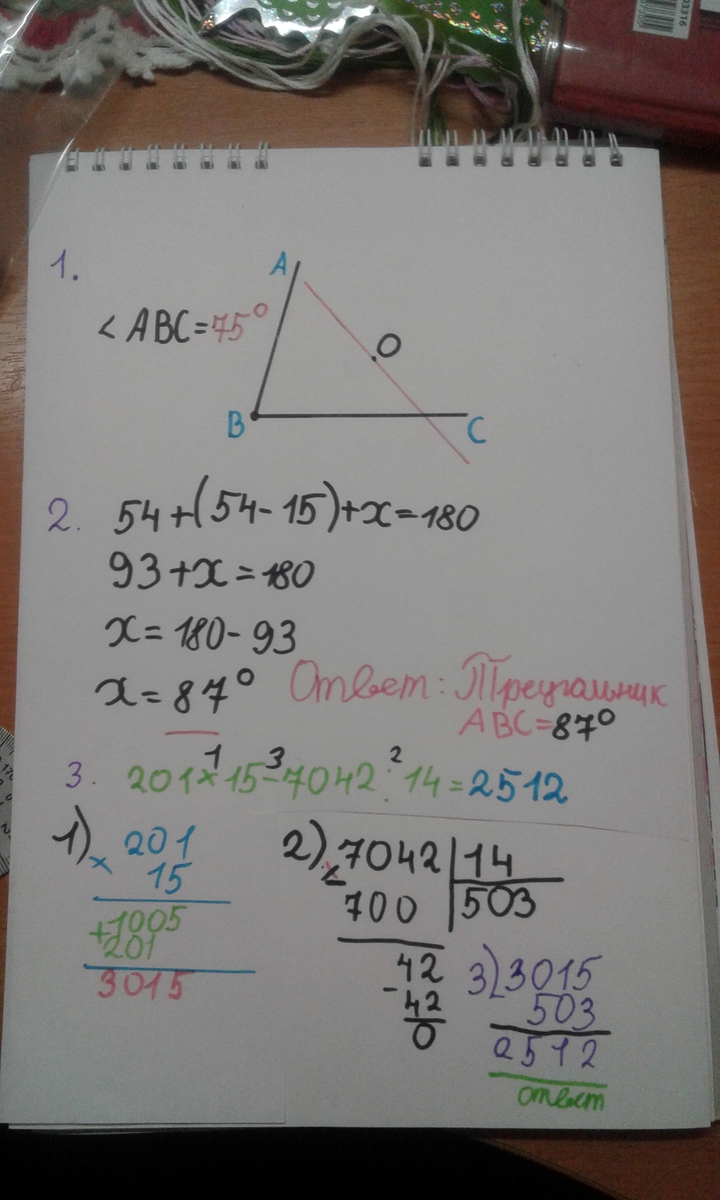 33316
1.
A
< ABC = 75°
O
B
C
2. 54 + (54 - 15) + x = 180
93 + x = 180
x = 180 - 93
x = 87°
Ответ: Треугальник
ABC = 87°
1 3 2
3. 201 × 15 - 7042 : 14 = 2512
1) × 201
15
+ 1005
201
3015
2) - 7042 | 14
700 | 503
42
- 42
0
3) - 3015
503
2512
ответ